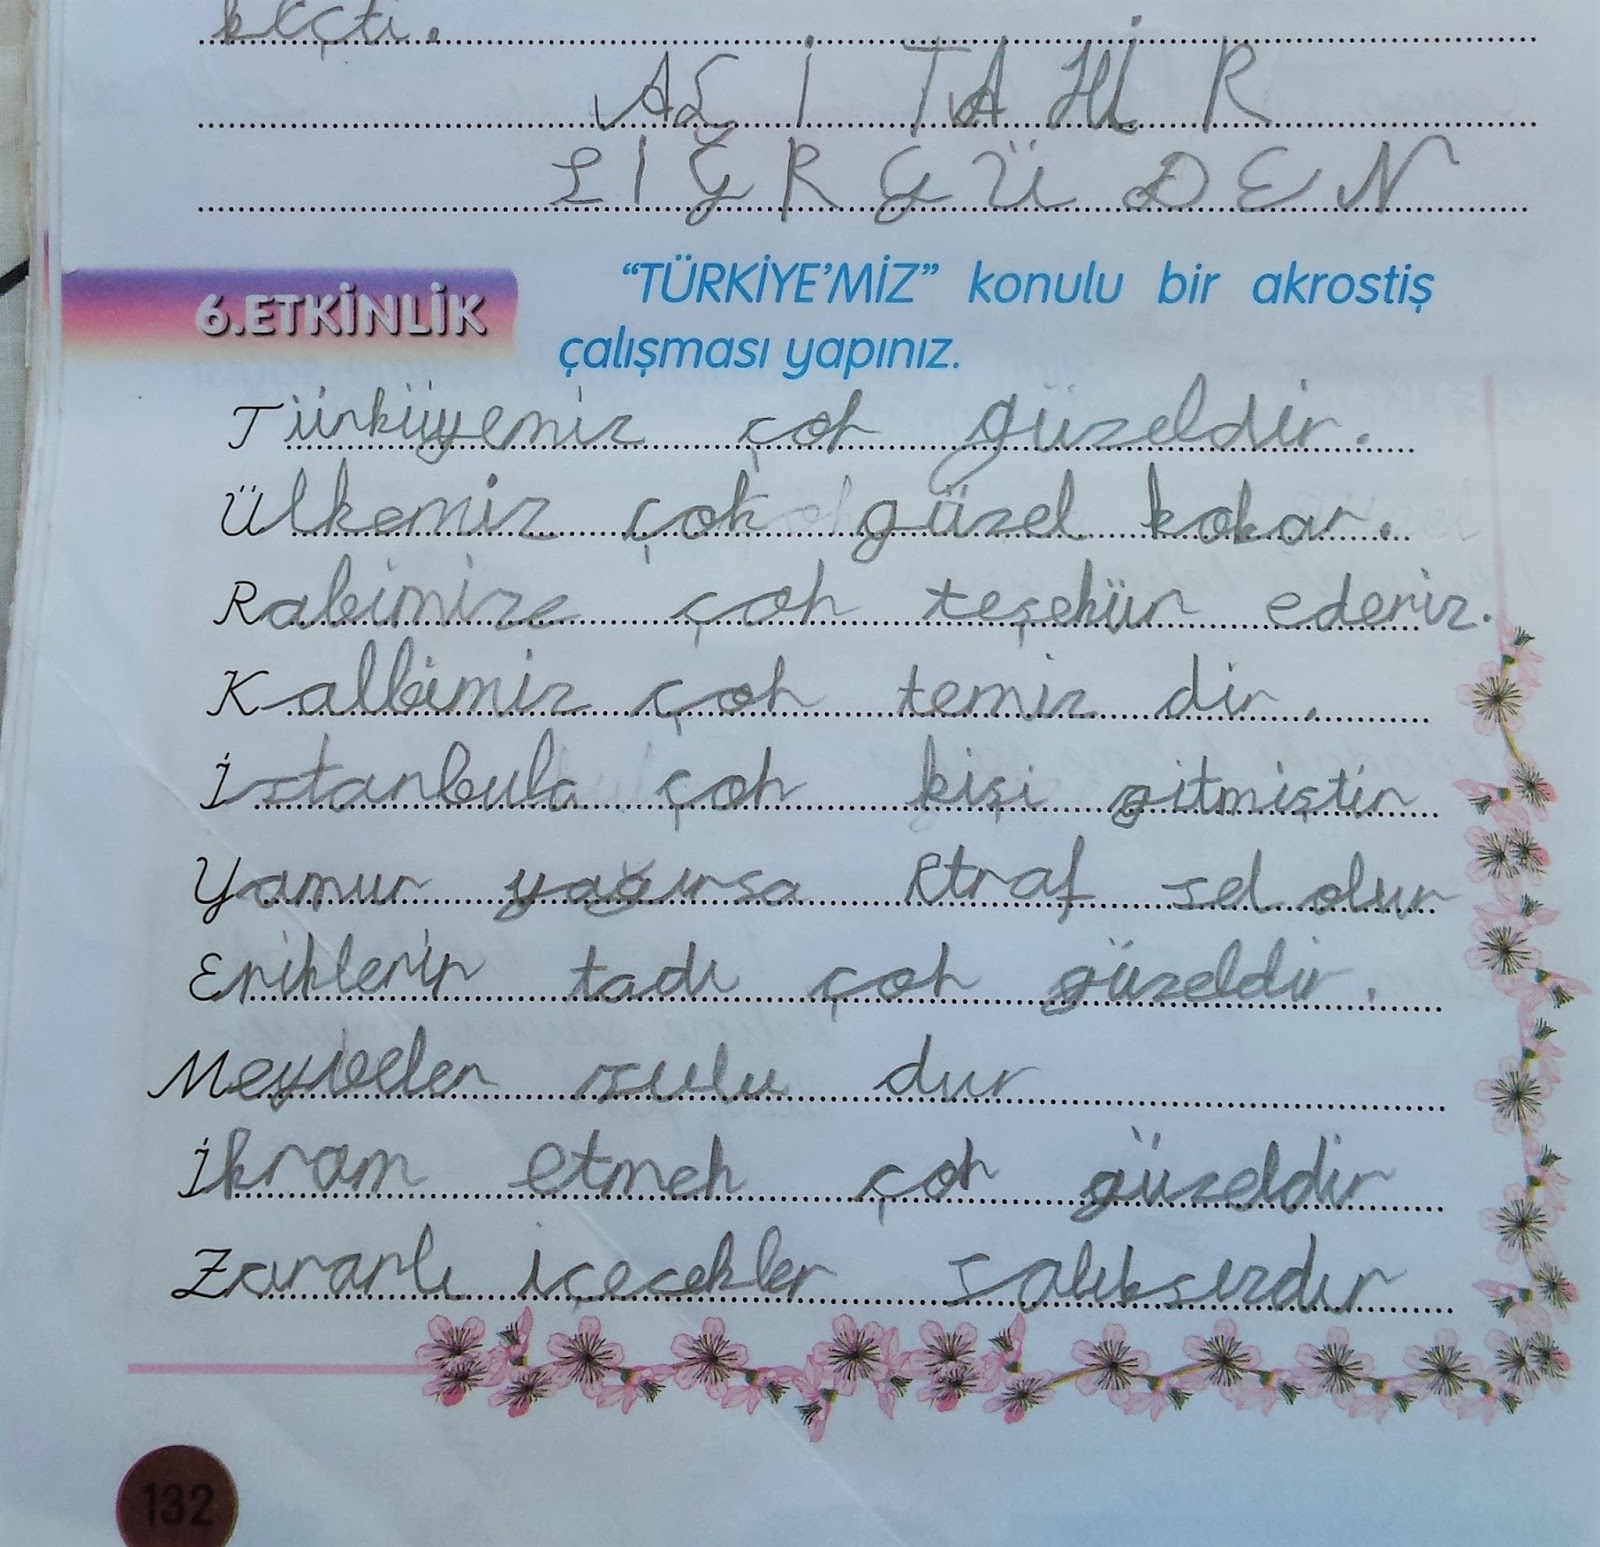 keçti.
ALİ TAHİR
LIĞRGÜDEN
6.ETKİNLİK
"TÜRKİYE'MİZ" konulu bir akrostiş
çalışması yapınız.
Türküyemiz çok güzeldir.
Ülkemiz çok güzel kokar.
Rabimize çok teşekür ederiz.
Kalbimiz çok temiz dir.
İstanbula çok kişi gitmiştir
Yamur yağırsa Etraf sel olur
Eriklerin tadı çok güzeldir.
Meyveler sulu dur
İkram etmek çok güzeldir
Zararlı içecekler salıksızdır
132